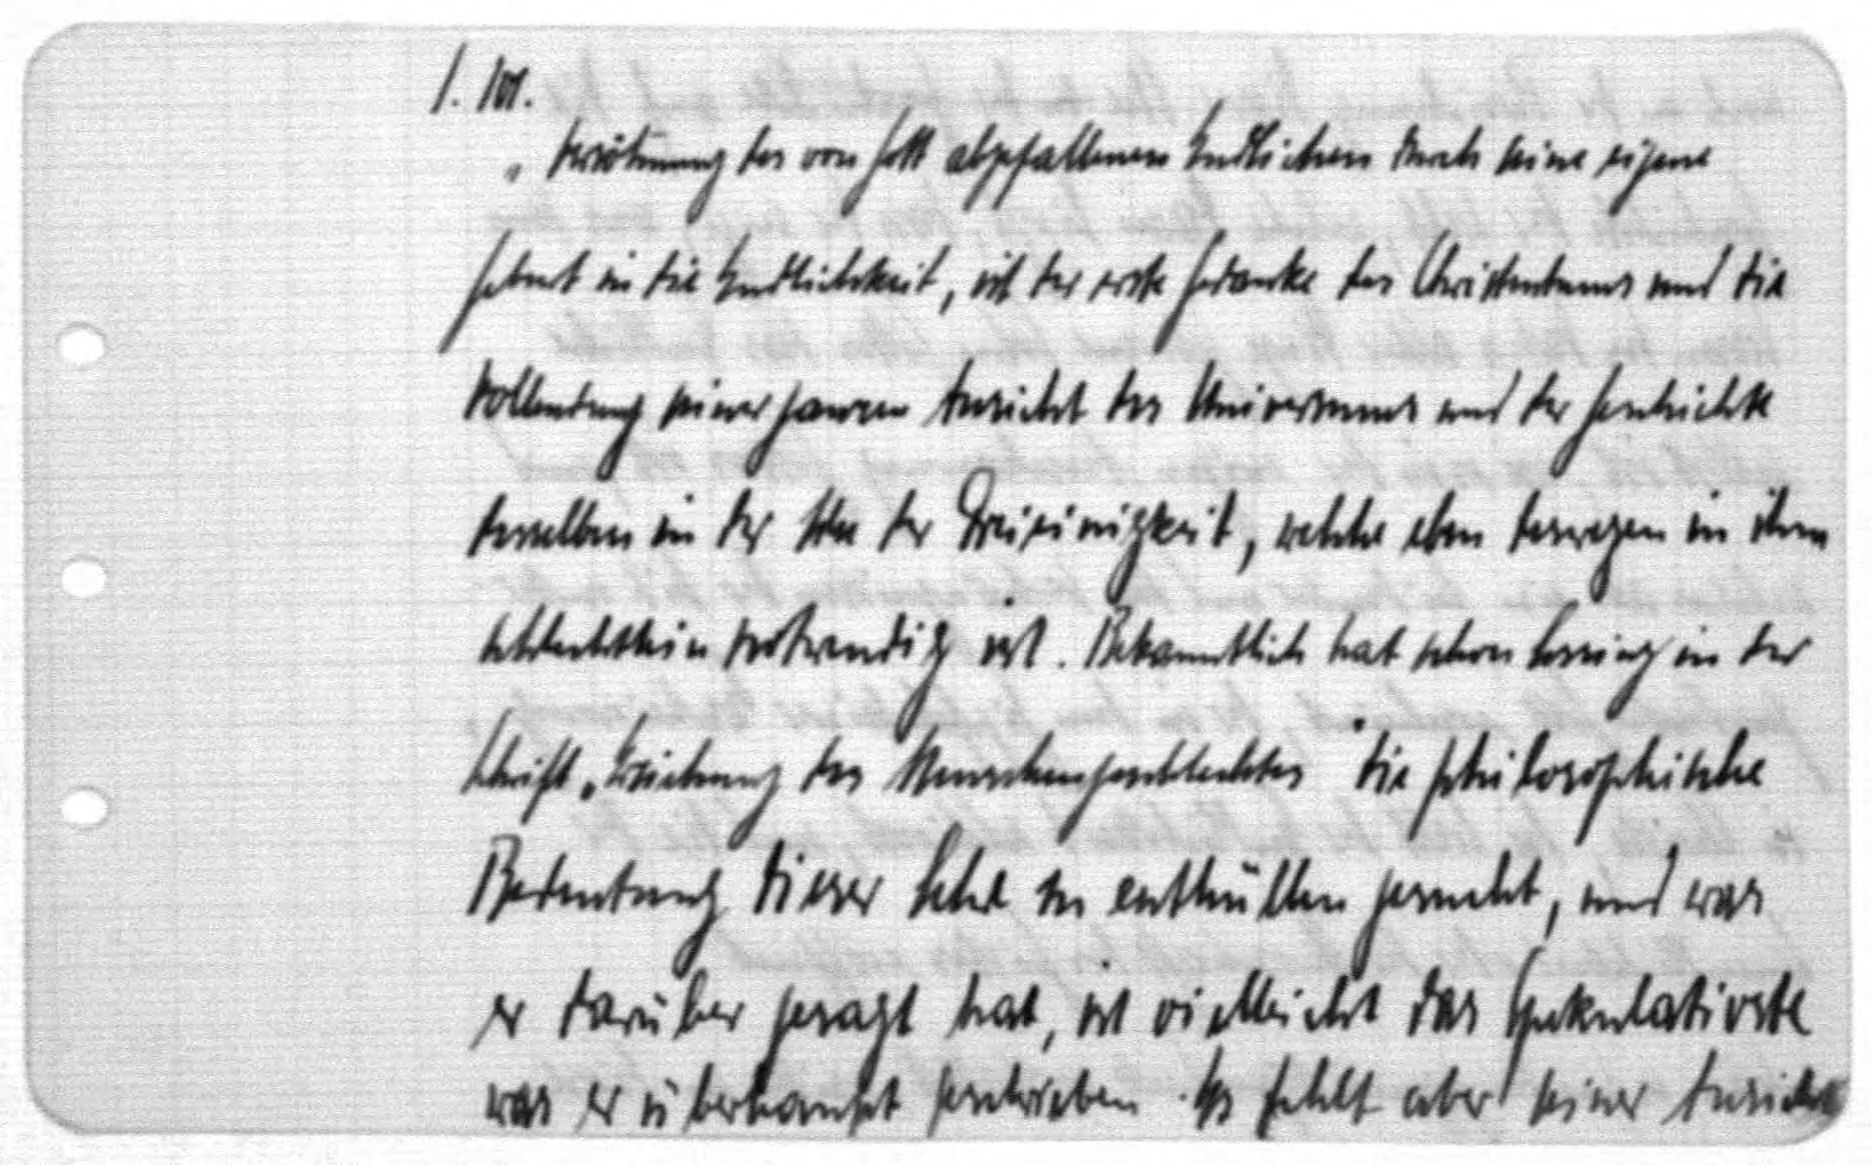 S. 101.
„Versöhnung des von Gott abgefallenen Endlichen durch seine eigene
Geburt in die Endlichkeit, ist der erste Gedanke des Christentums und die
Vollendung seiner ganzen Ansicht des Universums und der Geschichte
desselben in der Idee der Dreieinigkeit, welche eben deswegen in ihm
schlechthin notwendig ist. Bekanntlich hat schon Lessing in der
Schrift „Erziehung des Menschengeschlechtes" die philosophische
Bedeutung dieser Lehre zu enthüllen gesucht, und was
er darüber gesagt hat, ist vielleicht das Spekulativste
was er überhaupt geschrieben. Es fehlt aber seiner Ansicht